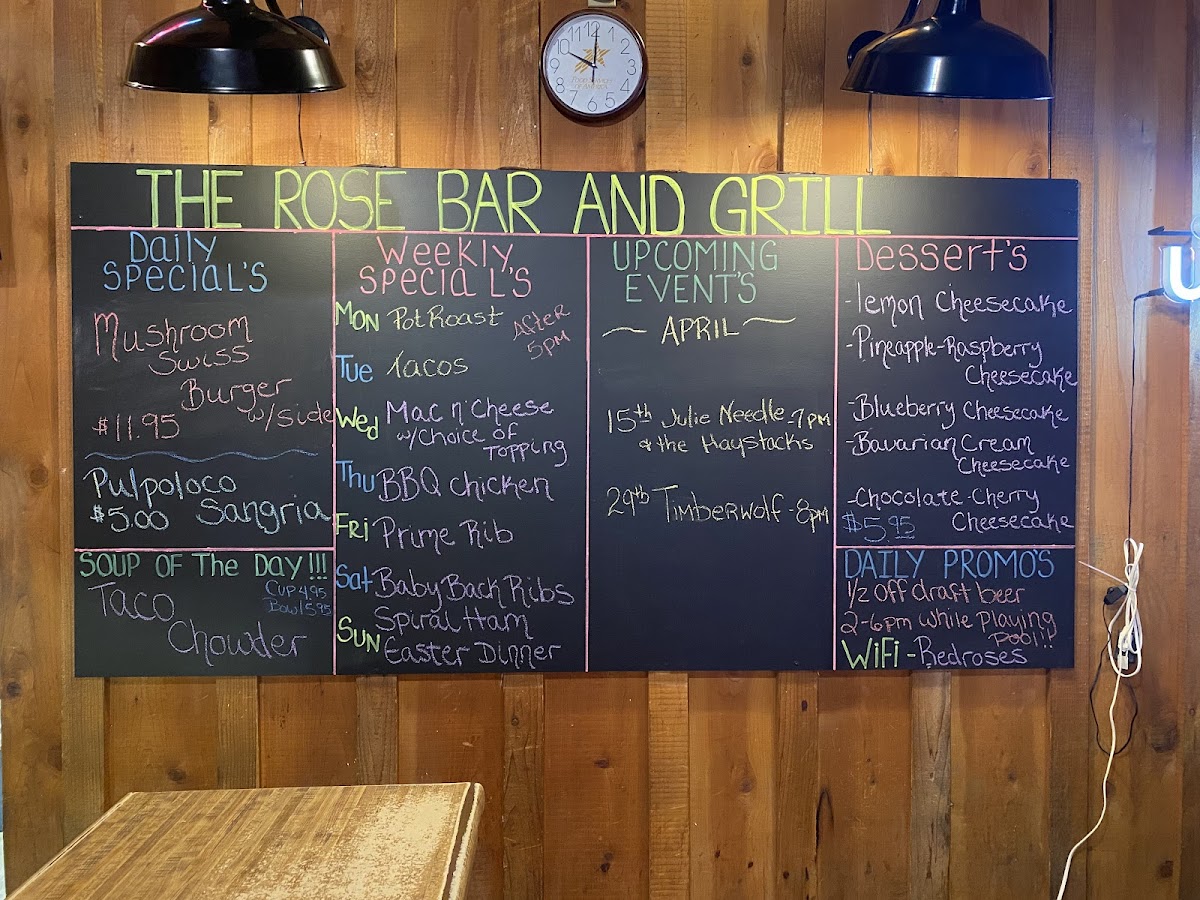 10 11 12 1 2 3 4 5 6 7 8 9
THE ROSE BAR AND GRILL
Daily
SPECIAL'S
Mushroom
Swiss
Burger
w/side
$11.95
Pulpoloco
$5.00 Sangria
SOUP OF The DAY!!!
CUP 4.95
Bowl 5.95
Taco
Chowder
Weekly
SPECIAL'S
After
5pm
MON Pot Roast
Tue Tacos
Wed Mac n' Cheese
w/choice of
Topping
Thu BBQ chicken
FRI Prime Rib
Sat Baby Back Ribs
Spiral Ham
SUN Easter Dinner
UPCOMING
EVENT'S
~ APRIL ~
15th Julie Needle - 7pm
& the Haystacks
29th Timberwolf - 8pm
Dessert's
-lemon Cheesecake
-Pineapple-Raspberry
Cheesecake
-Blueberry Cheesecake
-Bavarian Cream
Cheesecake
-Chocolate-Cherry
$5.95 Cheesecake
DAILY PROMO'S
1/2 OFF draft beer
2-6pm while playing
pool!!
WiFi - Redroses